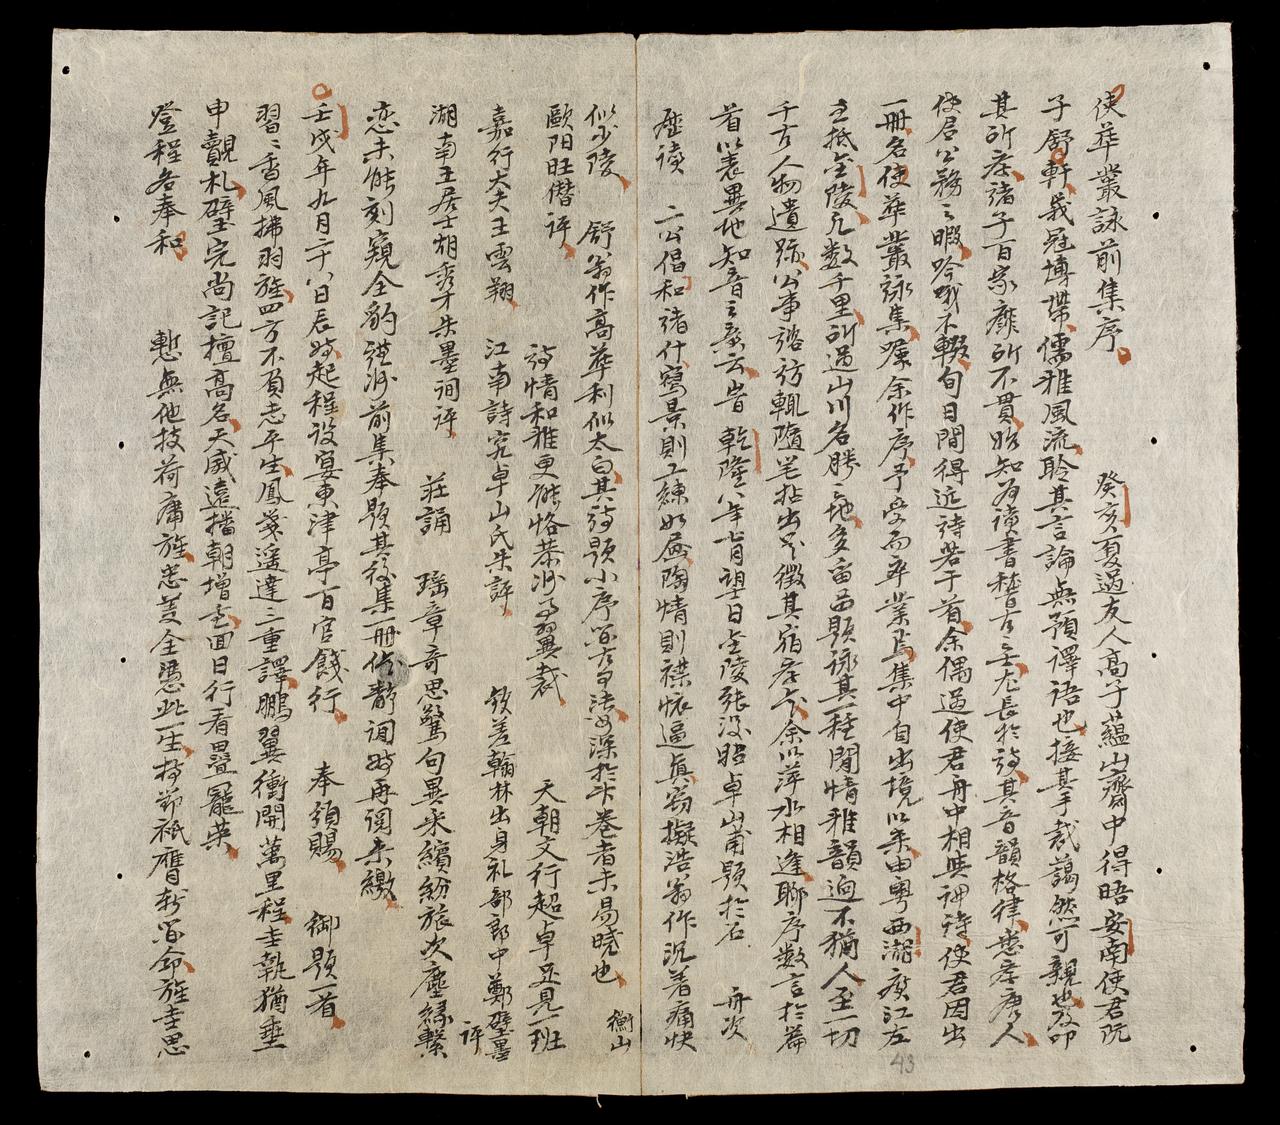 使華叢詠前集序 癸亥夏過友人高子蘊山齋中得晤安南使君阮
子舒軒峩冠博帶儒雅風流聆其言論無預譯語也接其手裁藹然可親也及叩
其所存諸子百家靡所不貫始知為讀書稽古之士尤長於詩其音韻格律悉存唐人
使君公務之暇吟哦不輟旬日間得近詩若干首余偶過使君舟中相與評詩使君因出
一冊名使華叢詠集囑余作序予受而卒業焉集中自出境以來由粵西湖廣江左
至抵金陵凡數千里所過山川名勝之地多留西題詠其一種閒情雅韻迥不猶人至一切
千古人物遺跡公事諮訪輒隨筆拈出足徵其宿存今余以萍水相逢聊序數言於篇
首以表異地知音之義云旹 乾隆八年七月望日金陵張漢昭卓山甫題於石 舟次
歷讀 二公倡和諸什寫景則工練如昼陶情則襟懷逼真窃擬浩翁作沉着痛快
似少陵 舒翁作高華利似太白其詩題小序皆古古法如深於此卷者未易曉也 衡山
歐阳旺僭評 詩情和雅更能恪恭將事翼裁 天朝文行超卓足見一班
嘉行大夫王雲翔 江南詩窓卓山氏朱評 欽差翰林出身礼部郎中鄭璧墨評
湖南王居士胡秀才朱墨洞評 莊誦 瑤章奇思驚句異采繽紛旅次塵緣繫
恋未能刻窺全豹謹將前集奉題其後集一冊俟靜洞時再閱来繳
壬戌年九月二十八日辰時起程設宴東津亭百官餞行 奉領賜 御題一首
習習香風拂羽旌四方不負志平生鳳箋遥達三重譯鵬翼衝開萬里程圭執猶垂
申覿札璧完尚記擅高名天威遠播朝增重回日行看疊寵荣
登程名奉和 慙無他技荷庸旌忠荩全憑此一生持節祇膺新寵命旌圭思